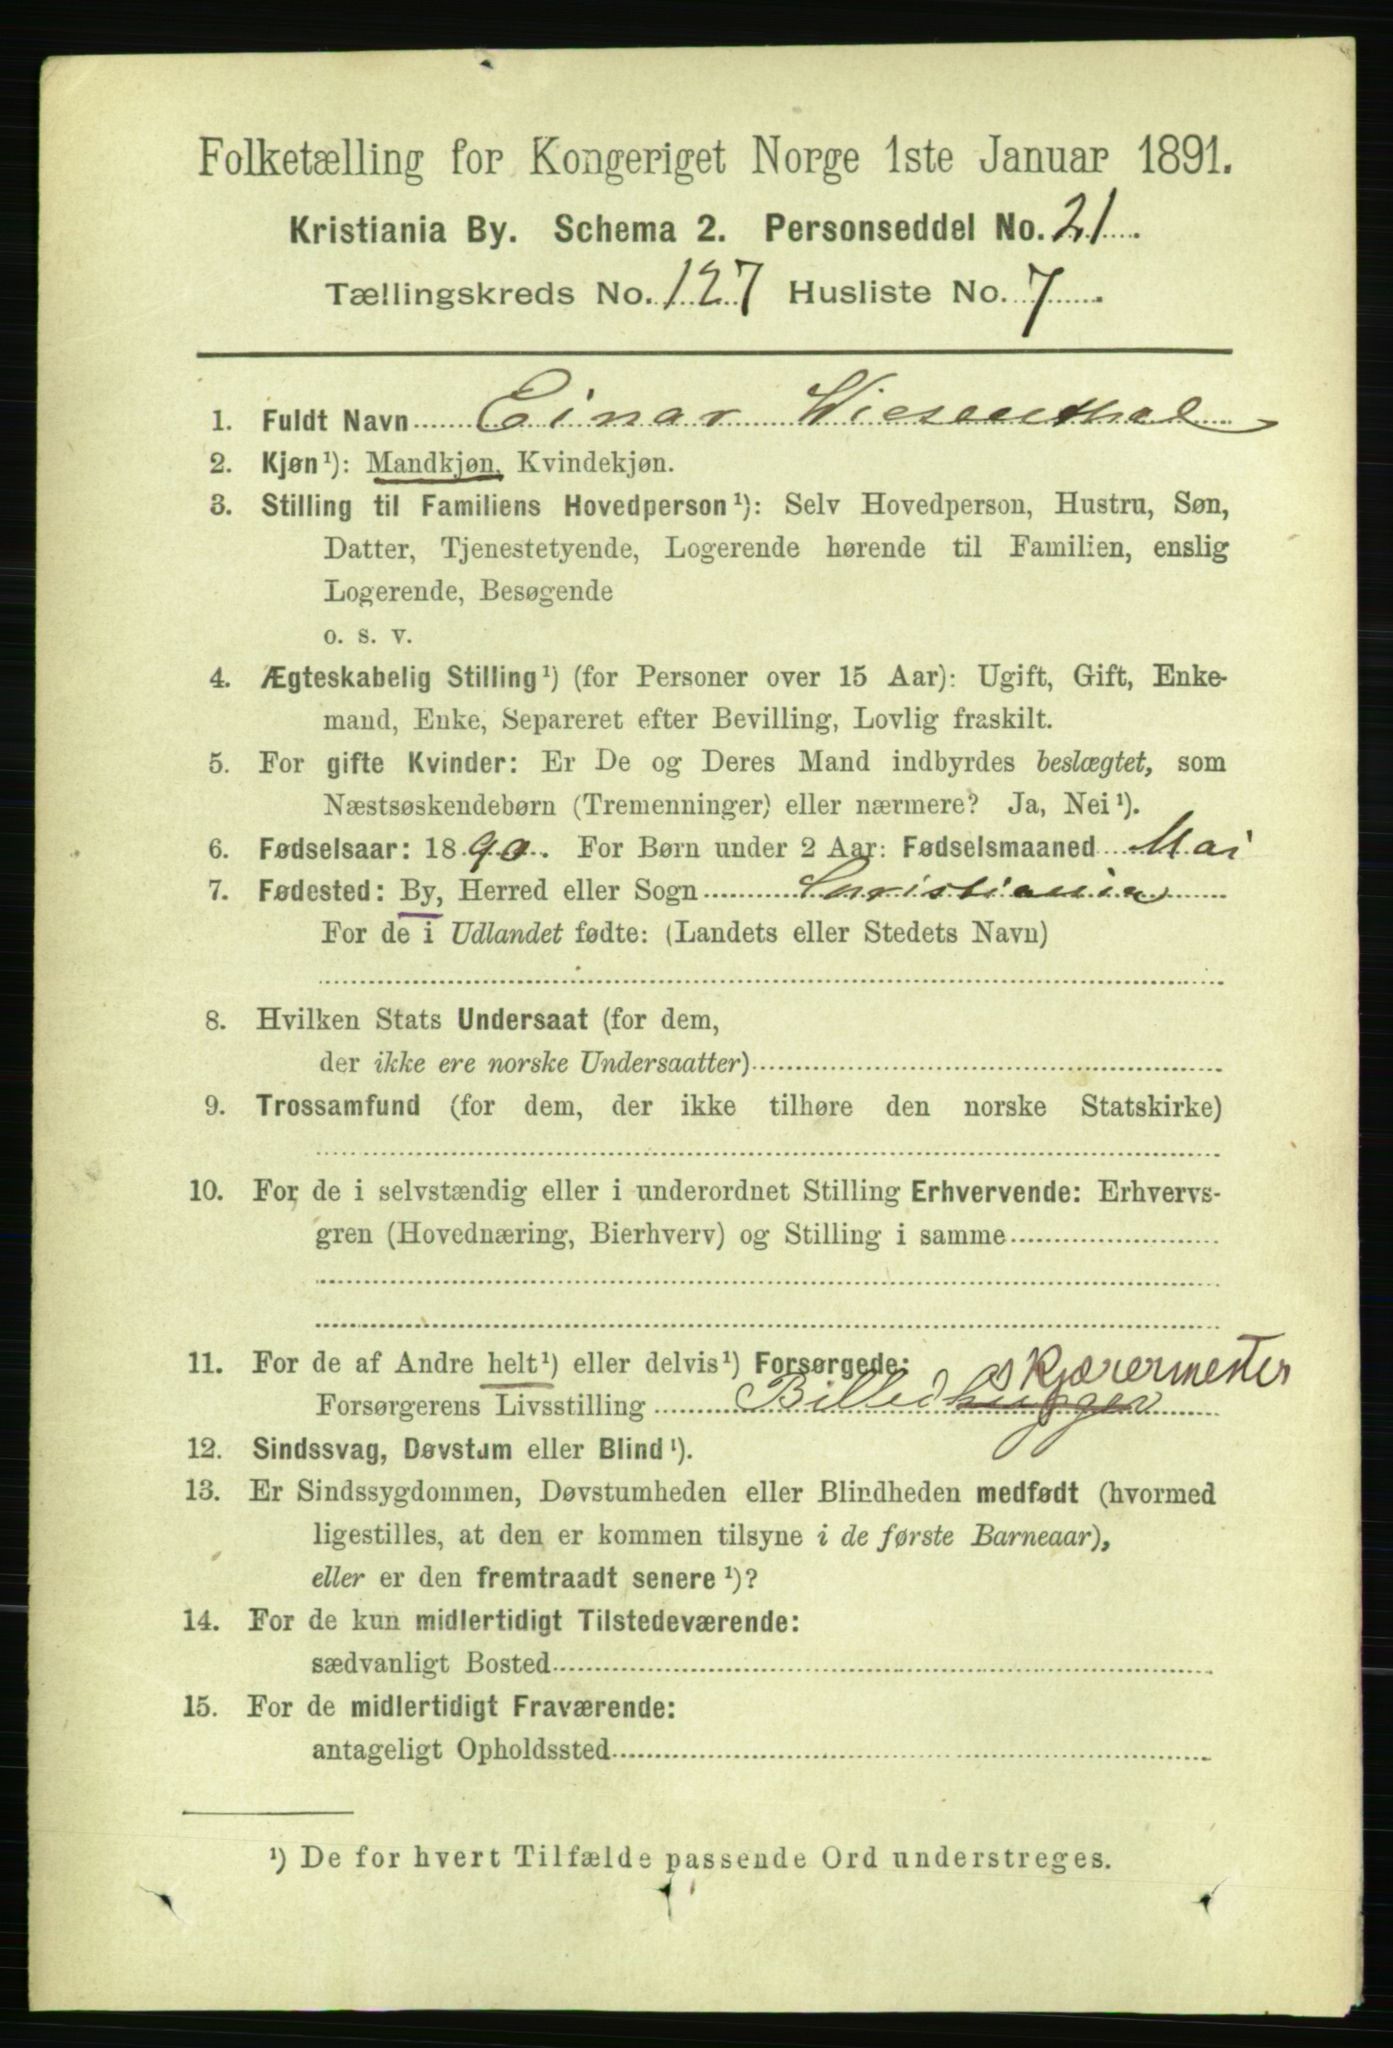 Folketælling for Kongeriget Norge 1ste Januar 1891.
Kristiania By. Schema 2. Personseddel No. 21
Tællingskreds No. 127 Husliste No. 7
1. Fuldt Navn Einar Wiesenthal
2. Kjøn¹): Mandkjøn, Kvindekjøn.
3. Stilling til Familiens Hovedperson¹): Selv Hovedperson, Hustru, Søn,
Datter, Tjenestetyende, Logerende hørende til Familien, enslig
Logerende, Besøgende
o. s. v.
4. Ægteskabelig Stilling¹) (for Personer over 15 Aar): Ugift, Gift, Enke-
mand, Enke, Separeret efter Bevilling, Lovlig fraskilt.
5. For gifte Kvinder: Er De og Deres Mand indbyrdes beslægtet, som
Næstsøskendebørn (Tremenninger) eller nærmere? Ja, Nei¹).
6. Fødselsaar: 1890. For Børn under 2 Aar: Fødselsmaaned Mai
7. Fødested: By, Herred eller Sogn Christiania
For de i Udlandet fødte: (Landets eller Stedets Navn)
8. Hvilken Stats Undersaat (for dem,
der ikke ere norske Undersaatter)
9. Trossamfund (for dem, der ikke tilhøre den norske Statskirke)
10. For de i selvstændig eller i underordnet Stilling Erhvervende: Erhvervs-
gren (Hovednæring, Bierhverv) og Stilling i samme
11. For de af Andre helt¹) eller delvis¹) Forsørgede:
skjærermester
Forsørgerens Livsstilling Billedhugger
12. Sindssvag, Døvstum eller Blind¹).
13. Er Sindssygdommen, Døvstumheden eller Blindheden medfødt (hvormed
ligestilles, at den er kommen tilsyne i de første Barneaar),
eller er den fremtraadt senere¹)?
14. For de kun midlertidigt Tilstedeværende:
sædvanligt Bosted
15. For de midlertidigt Fraværende:
antageligt Opholdssted
¹) De for hvert Tilfælde passende Ord understreges.